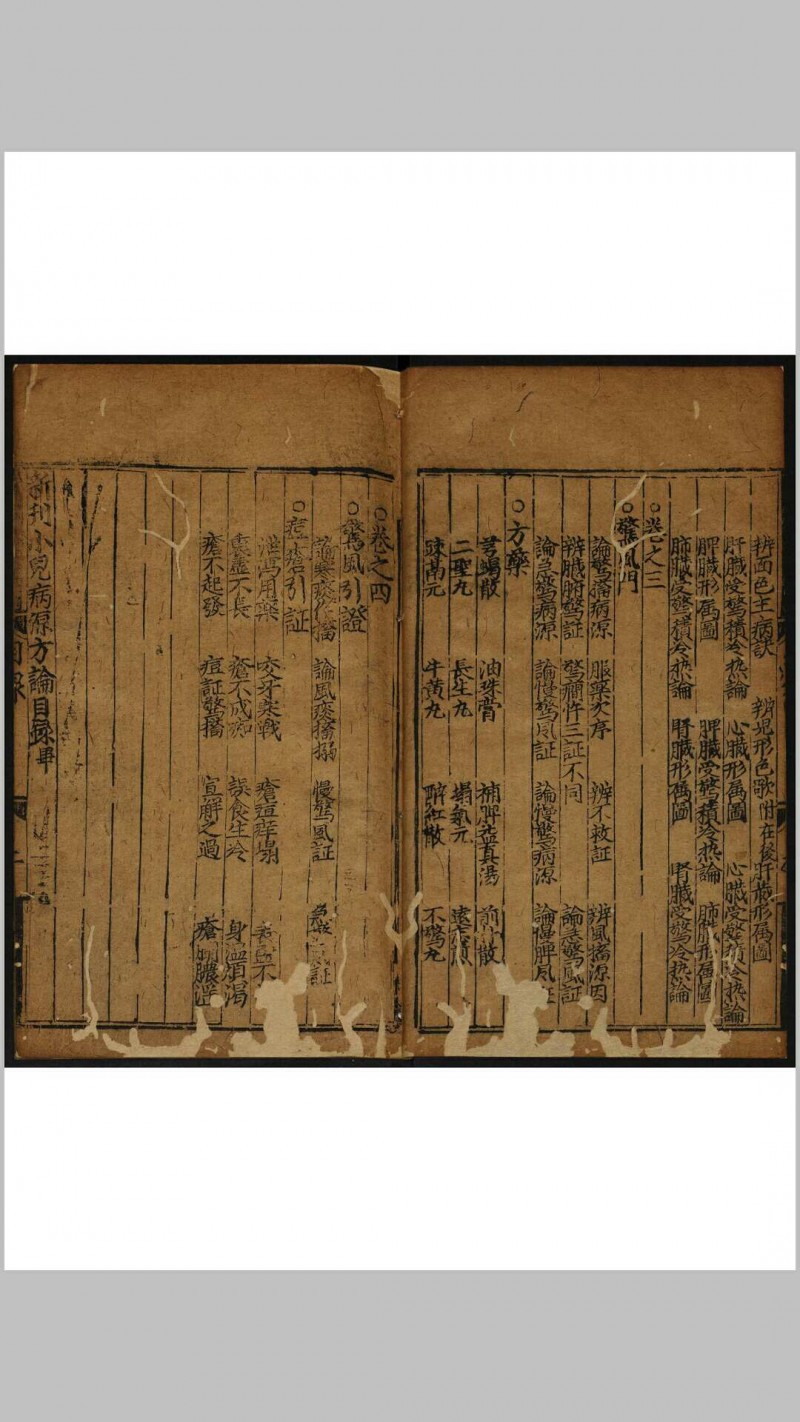 辨面色主病訣 辨兒形色歌附在後 肝臟形舄圖
肝臟受驚積冷热論 心臟形舄圖 心臟受驚積冷热論
脾臟形舄圖 脾臟受驚積冷热論 肺臟形舄圖
肺臟受驚積冷热論 腎臟形舄圖 腎臟受驚冷热論
○卷之三
○驚風門
論驚搐病源 服藥次序 辨不救証 辨風搐源因
辨臟腑驚証 驚癎忤三証不同 論急驚風証
論急驚病源 論慢驚風証 論慢驚病源 論慢脾風証
○方藥
油珠膏 補脾益真湯 前朴散
二聖丸 長生丸 塌氣元
牛黃丸 醉紅散 不驚丸
○卷之四
○驚風引證
論風痰搐搦 慢驚風証
引証
用藥 咬牙寒戰 瘡痘痒塌
不長 瘡不成痂 誤食生冷 身溫煩渴
瘡不起發 痘証驚搐 宣解之過 瘡
新刊小兒病源方論目錄畢